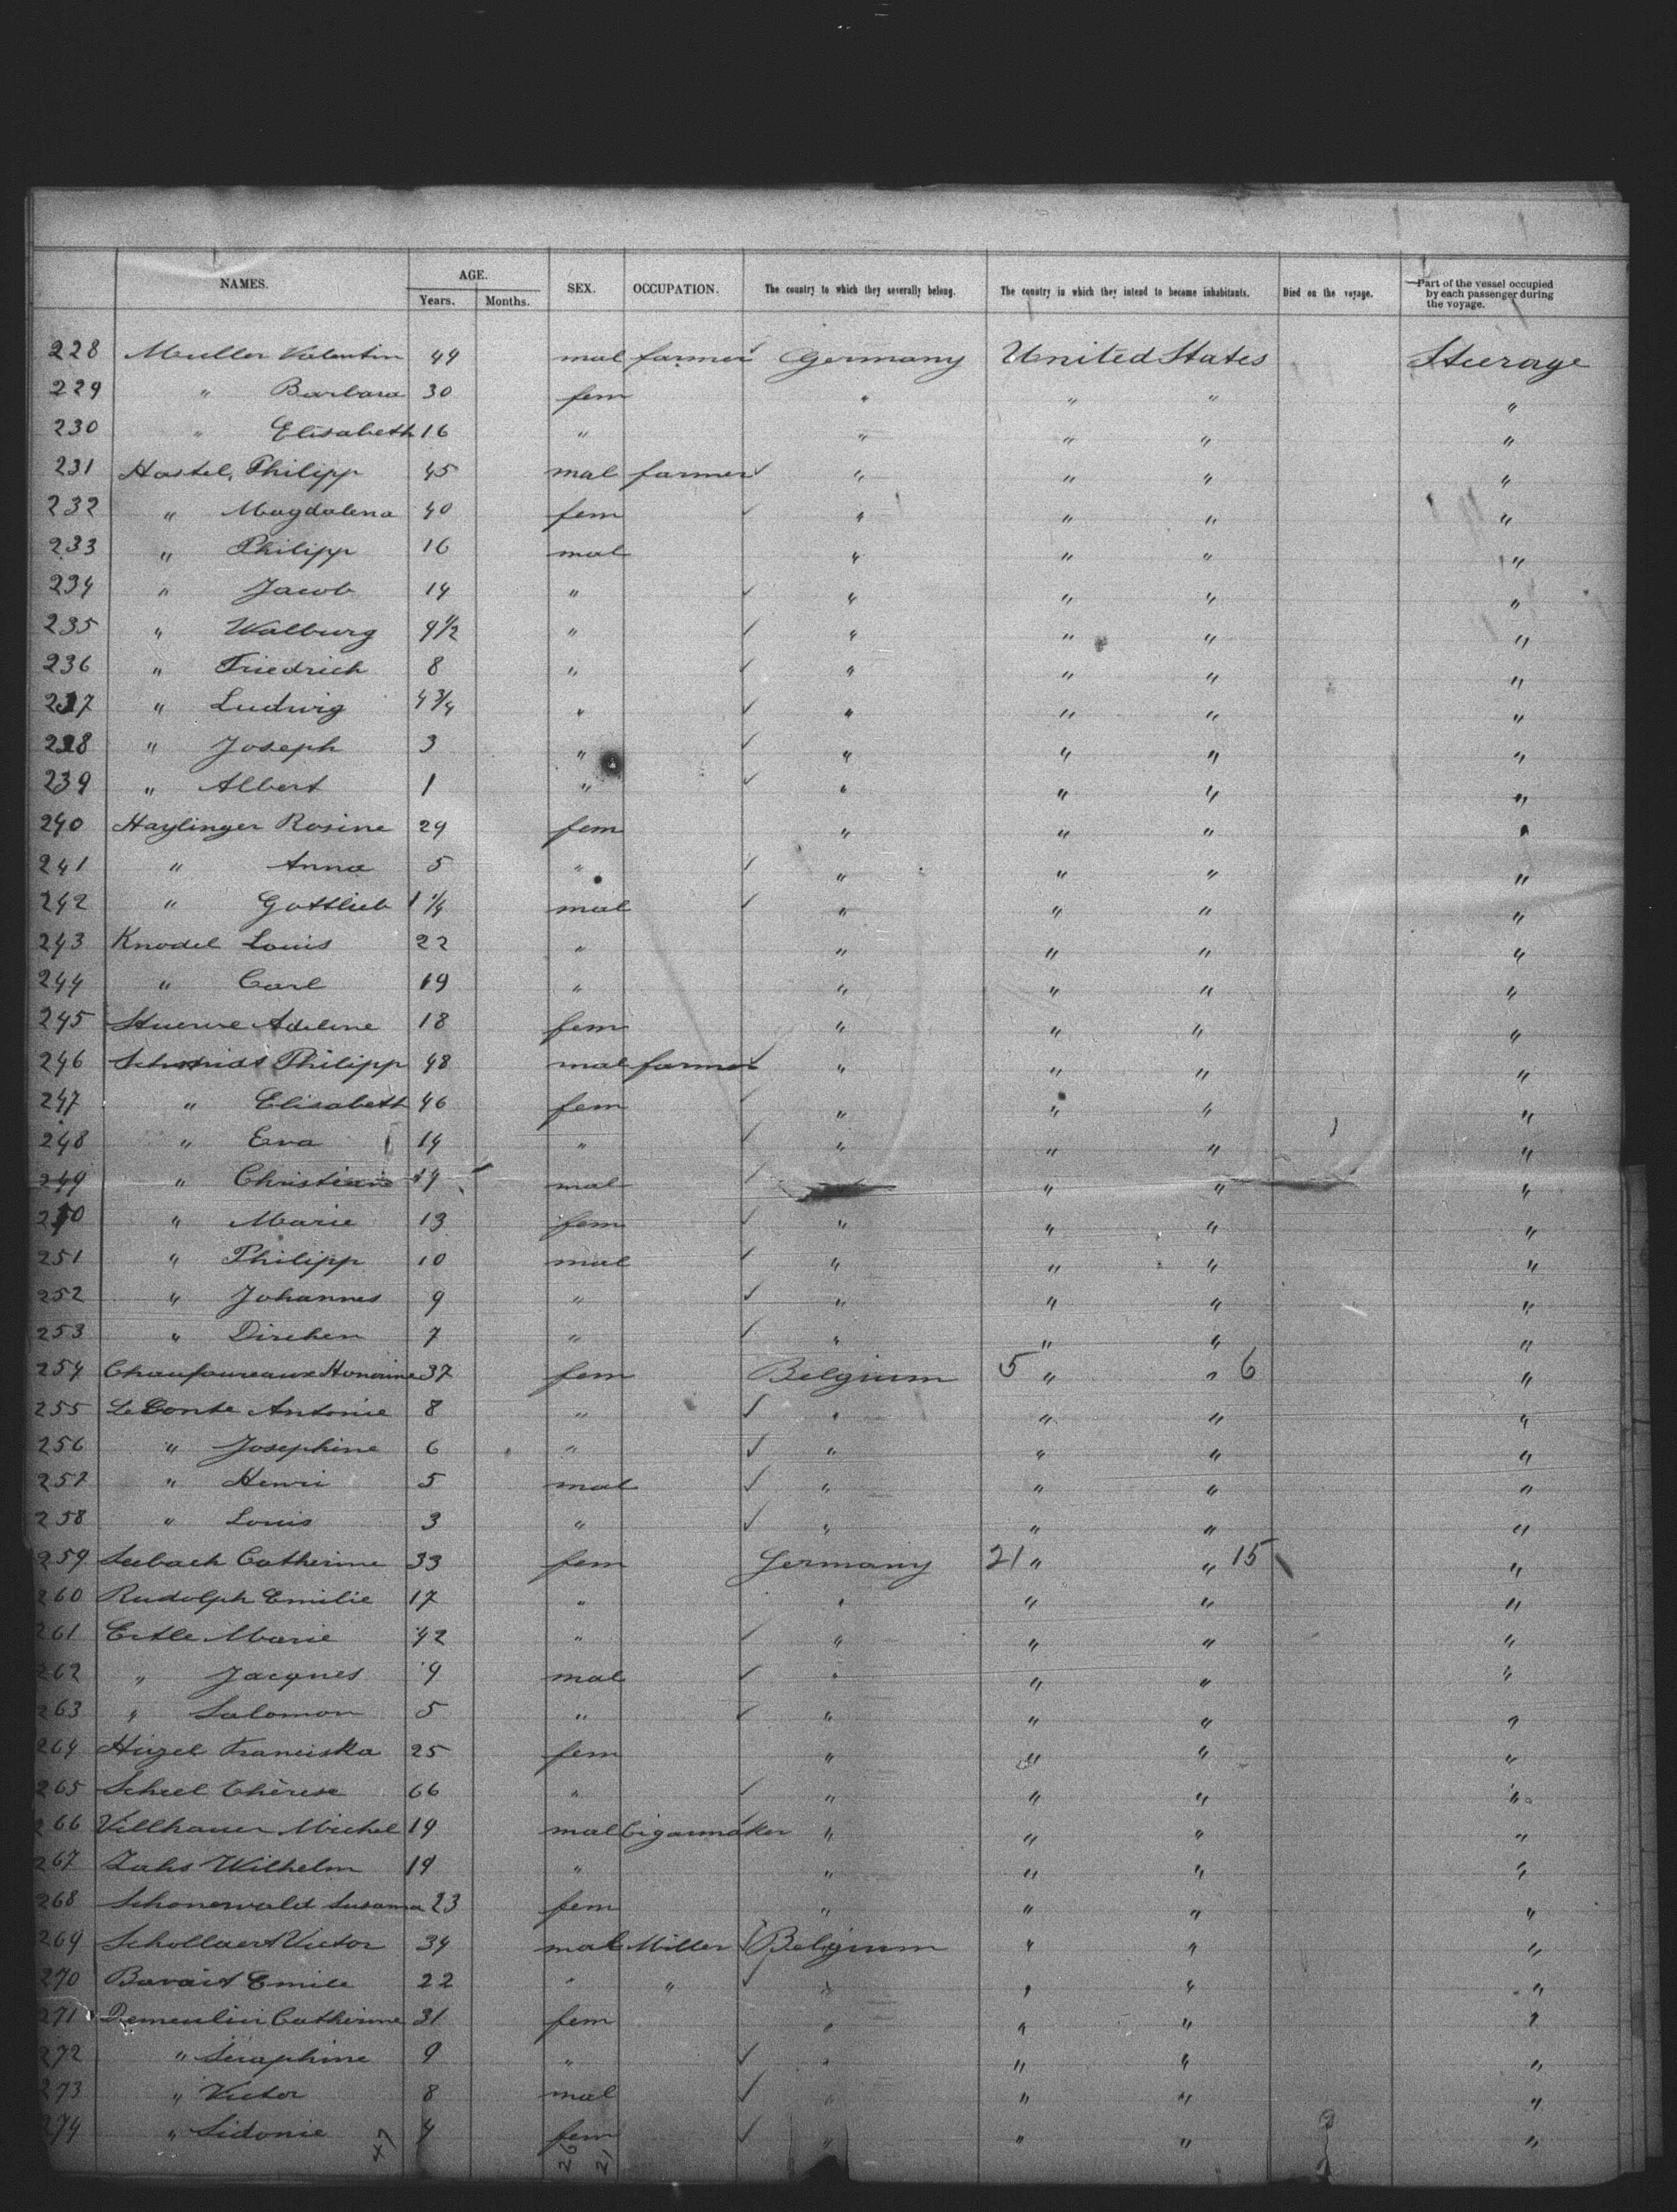 NAMES. AGE. SEX. OCCUPATION. The country to which they severally belong. The country in which they intend to become inhabitants. Died on the voyage. Part of the vessel occupied by each passenger during the voyage.
Years. Months.
228 Muller Valentin 44 mal farmer Germany United States Steerage
229 " Barbara 30 fem " " " "
230 " Elisabeth 16 " " " " "
231 Hastel, Philipp 45 mal farmer " " " "
232 " Magdalena 40 fem " " " "
233 " Philipp 16 mal " " " "
234 " Jacob 14 " " " " "
235 " Walburg 9 1/2 " " " " "
236 " Friedrich 8 " " " " "
237 " Ludwig 4 3/4 " " " " "
238 " Joseph 3 " " " " "
239 " Albert 1 " " " " "
240 Haylinger Rosine 29 fem " " " "
241 " Anna 5 " " " " "
242 " Gottlieb 1 1/4 mal " " " "
243 Knodel Louis 22 " " " " "
244 " Carl 19 " " " " "
245 Stuewe Adeline 18 fem " " " "
246 Schmidt Philipp 48 mal farmer " " " "
247 " Elisabeth 46 fem " " " "
248 " Eva 14 " " " " "
249 " Christian mal " " "
250 " Marie 13 fem " " " "
251 " Philipp 10 mal " " " "
252 " Johannes 9 " " " " "
253 " Dirchen 7 " " " " "
254 Chaufoureaux Honorine 37 fem Belgium 5 " " 6 "
255 LeConte Antonie 8 " " " " "
256 " Josephine 6 " " " " "
257 " Henri 5 mal " " " "
258 " Louis 3 " " " " "
259 Seebach Catherine 33 fem Germany 21 " " 15 "
260 Rudolph Emilie 17 " " " " "
261 Ertle Marie 42 " " " " "
262 " Jacques 9 mal " " " "
263 " Salomon 5 " " " " "
264 Hügel Franciska 25 fem " " " "
265 Scheel Thérese 66 " " " " "
266 Villhauer Michel 19 mal Cigarmaker " " " "
267 Zahs Wilhelm 19 " " " " "
268 Schonewald Susanna 23 fem " " " "
269 Schollaert Victor 34 mal Miller Belgium " " "
270 Bavait Emile 22 " " " " " "
271 Demeulin Catherine 31 fem " " " "
272 " Seraphine 9 " " " " "
273 " Victor 8 mal " " " "
274 " Sidonie 4 fem " " " "
47 26 21